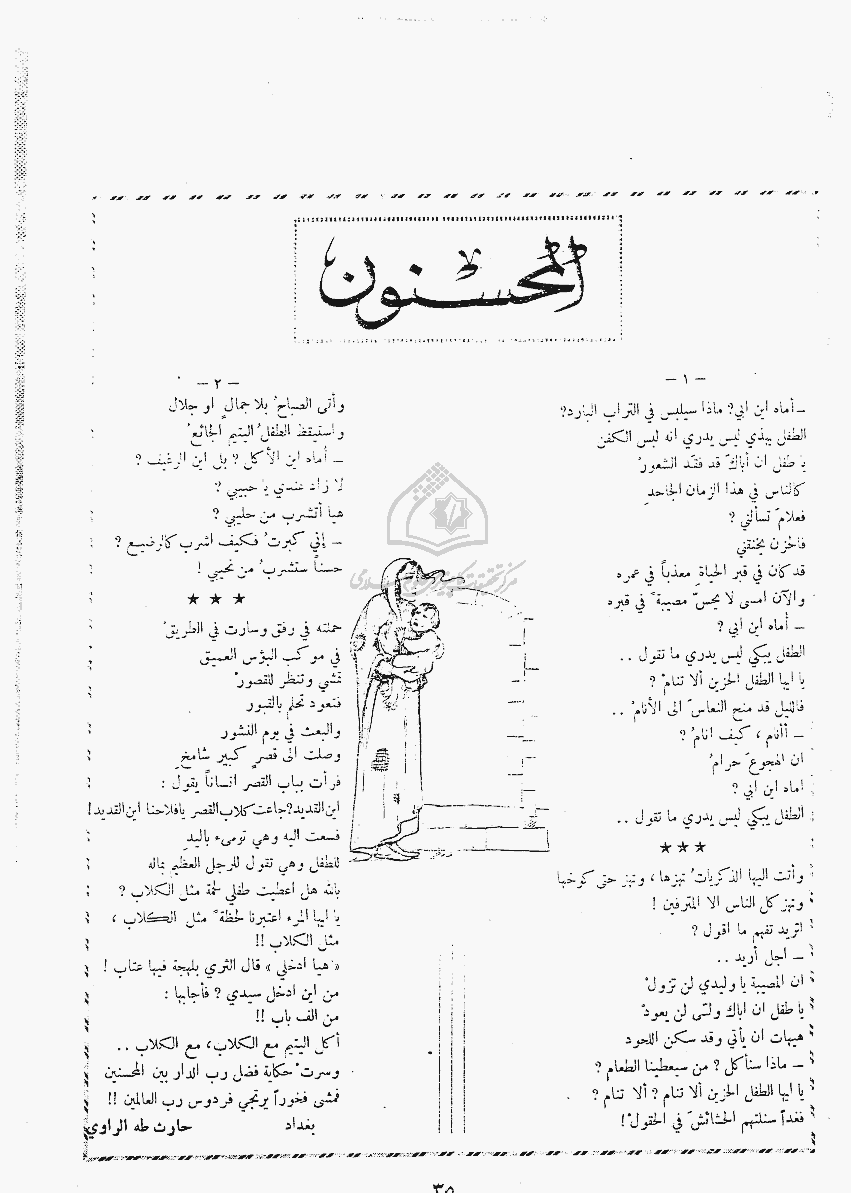 المحسنون
— ١ —
— أماه اين ابي؟ ماذا سيلبس في التراب البارد؟
الطفل يهذي ليس يدري انه لبس الكفن
يا طفل ان أباكَ قد فقد الشعورْ
كالناس في هذا الزمان الجاحدِ
فعلامَ تسألني ؟
فالحزن يخنقني
قد كان في قبر الحياةِ معذباً في عمره
والآن امسى لا يحسّ مصيبةً في قبره
— أماه اين ابي ؟
الطفل يبكي ليس يدري ما تقول ..
يا ايها الطفل الحزين ألا تنامْ ؟
فالليل قد منح النعاسَ الى الأنامْ ..
— أأنام ، كيف انامُ ؟
ان الهجوعَ حرامُ
اماه اين ابي ؟
الطفل يبكي ليس يدري ما تقول ..
★ ★ ★
وأتت اليها الذكرياتُ تهزها ، وتهز حتى كوخها
وتهز كل الناس الا المترفين !
اتريد تفهم ما اقول ؟
— أجل أريد ..
ان المصيبة يا وليدي لن تزولْ
يا طفل ان اباك ولّى لن يعودْ
هيهات ان يأتي وقد سكن اللحود
— ماذا سنأكل ؟ من سيعطينا الطعام ؟
يا ايها الطفل الحزين ألا تنام ؟ ألا تنام ؟
فغداً سنلتهم الحشائشَ في الحقولْ !
— ٢ —
وأتى الصباحُ بلا جمالٍ او جلال
واستيقظ الطفلُ اليتيم الجائعُ
— أماه اين الأكل ؟ بل اين الرغيف ؟
لا زاد عندي يا حبيبي ؟
هيا أتشرب من حليبي ؟
— إني كبرتُ فكيف اشرب كالرضيع ؟
حسناً ستشربُ من نحيبي !
★ ★ ★
حملته في رفق وسارت في الطريقْ
في موكب البؤس العميق
تمشي وتنظر للقصورْ
فتعود تحلم بالقبور
والبعث في يوم النشور
وصلت الى قصرٍ كبير شامخٍ
فرأت بباب القصر انساناً يقول :
اين القديد؟ جاعت كلاب القصر يا فلاحنا اين القديد !
فسعت اليه وهي تومىء باليدِ
للطفل وهي تقول للرجل العظيم بماله
بالله هل اعطيت طفلي لحمة مثل الكلاب ؟
يا ايها المرء اعتبرنا لحظةً مثل الكلاب ،
مثل الكلاب !!
« هيا ادخلي » قال الثري بلهجة فيها عتاب !
من اين ادخل سيدي ؟ فأجابها :
من الف باب !!
أكل اليتيم مع الكلاب ، مع الكلاب ..
وسرتْ حكاية فضل رب الدار بين المحسنين
فمشى فخوراً يرتجي فردوس رب العالمين !!
بغداد حارث طه الراوي
٣٥